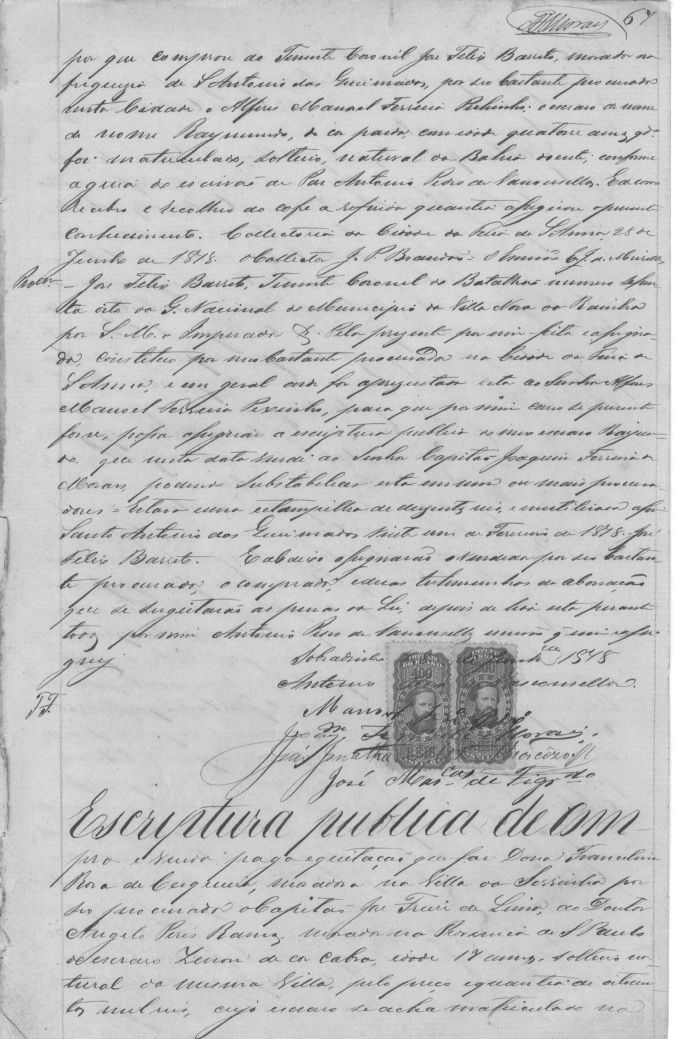 67
por que comprou ao Tenente Coronel José Felix Barreto, morador na
freguezia de S Antonio das Queimadas, por seo bastante procurador
nesta Cidade o Alferes Manoel Ferreira Peixinho, o escravo de nome
de nome Raymundo, de cor parda com idade quatorze annos, q.
foi matriculado, solteiro, natural da Bahia conforme
a guia do escrivão de Paz Antonio Pedro de Vasconcellos. E como
recebeo e recolheo ao cofre a referida quantia assignou o presente
conhecimento. Collectoria da Cidade da Feira de S Anna 28 de
Junho de 1878. O Collector J. P. Brandão. O Escrivão
Procn
– José Felix Barreto, Tenente Coronel do Batalhão numero
oito da G. Nacional do Municipio da Villa Nova da Rainha
por S. M. o Imperador & Pela prezente por mim feita e assigna-
da, constituo por meo bastante procurador na Cidade da Feira de
S Anna, e em geral onde for aprezentada esta ao Senhor Alferes
Manoel Ferreira Peixinho, para que por mim como se prezente
fosse, possa assignar a escriptura publica do meo escravo Raimun-
do que nesta data vendi ao Senhor Capitão Joaquim Ferreira de
Moraes, podendo substabelecer esta em um ou mais procura-
dores – Estava uma estampilha de duzentos reis, e inutilizada assim
Santo Antonio das Queimadas vinte um de Fevereiro de 1878. José
Felix Barreto. E abaixo assignarão o vendedor por seo bastan-
te procurador, o comprador, e duas testemunhas de abonação
que se sugeitarão as penas da Lei, depois de lida esta perante
todos por mim Antonio Pedro de Vasconcellos escrivão q escrevi e assi-
gnei
Sobradinho 1878
Antonio Vasconcellos.
IMPERIO DO BRAZIL
400
REIS
Manoel
Moraes
José
José Mar.cas de Figr.do
Escriptura publica de com-
pra e venda paga e quitação que faz Dona Francelina
Roza de Cerqueira, moradora na Villa da Serrinha por
seo procurador o Capitão José Freire de Lima, ao Doutor
Angelo Pires Ramos, morador na Provincia de S Paulo
do escravo Zenon de cor cabra, idade 17 annos, solteiro na-
tural da mesma Villa, pelo preço e quantia de oitocen-
tos mil reis, cujo escravo se acha matriculado na